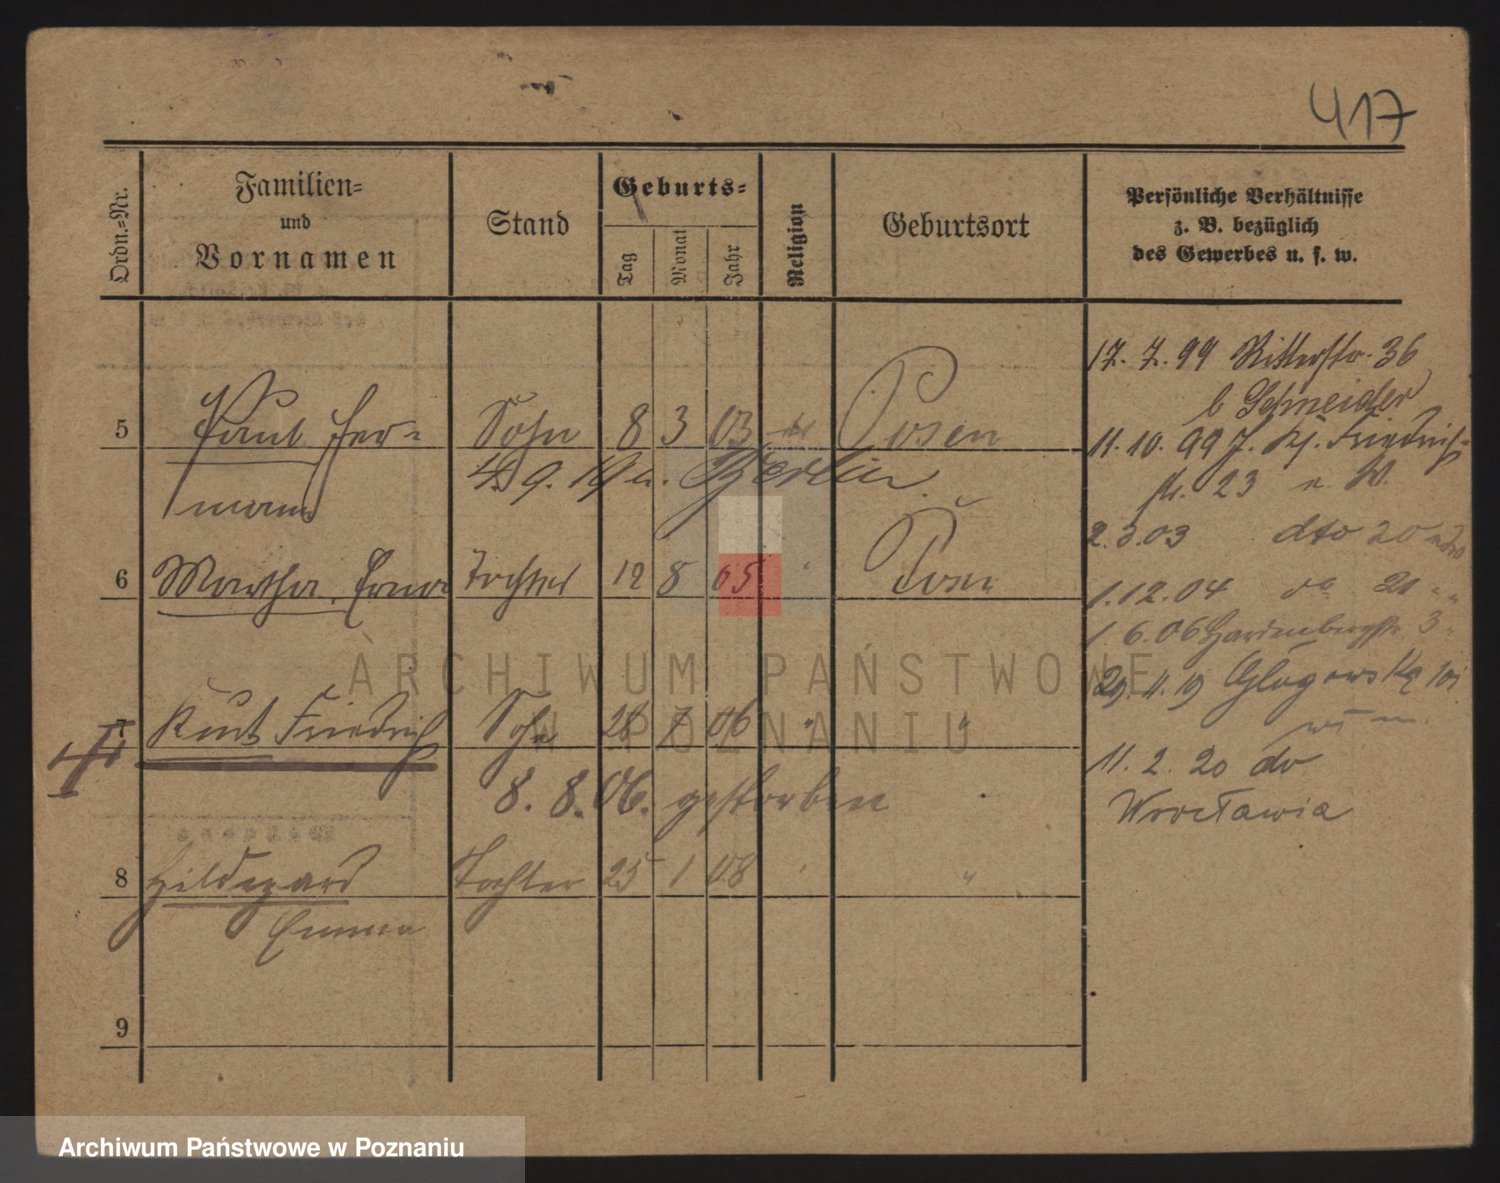 417
Ordn.=Nr.
Familien=
und
Vornamen
Stand
Geburts=
Tag
Monat
Jahr
Religion
Geburtsort
Persönliche Verhältnisse
z. B. bezüglich
des Gewerbes u. s. w.
17. 7. 99 Ritterstr. 36
b Schneider
5 Paul Her= Sohn 8 3 03 Posen
11. 10. 99 Friedrich=
mann
4. 9. 19 n. Berlin
str. 23
2. 3. 03 dto 20
6 Martha Erna Tochter 12 8 05 " Posen
1. 12. 04 do 21 " "
1. 6. 06 Hardenbergstr. 3
29. 11. 19 Głogowska 101
7 Kurt Friedrich Sohn 28 7 06 " "
8. 8. 06. gestorben
11. 2. 20 do
Wrocławia
8 Hildegard Tochter 25 1 08 " "
Emma
9
ARCHIWUM PAŃSTWOWE
W POZNANIU
Archiwum Państwowe w Poznaniu